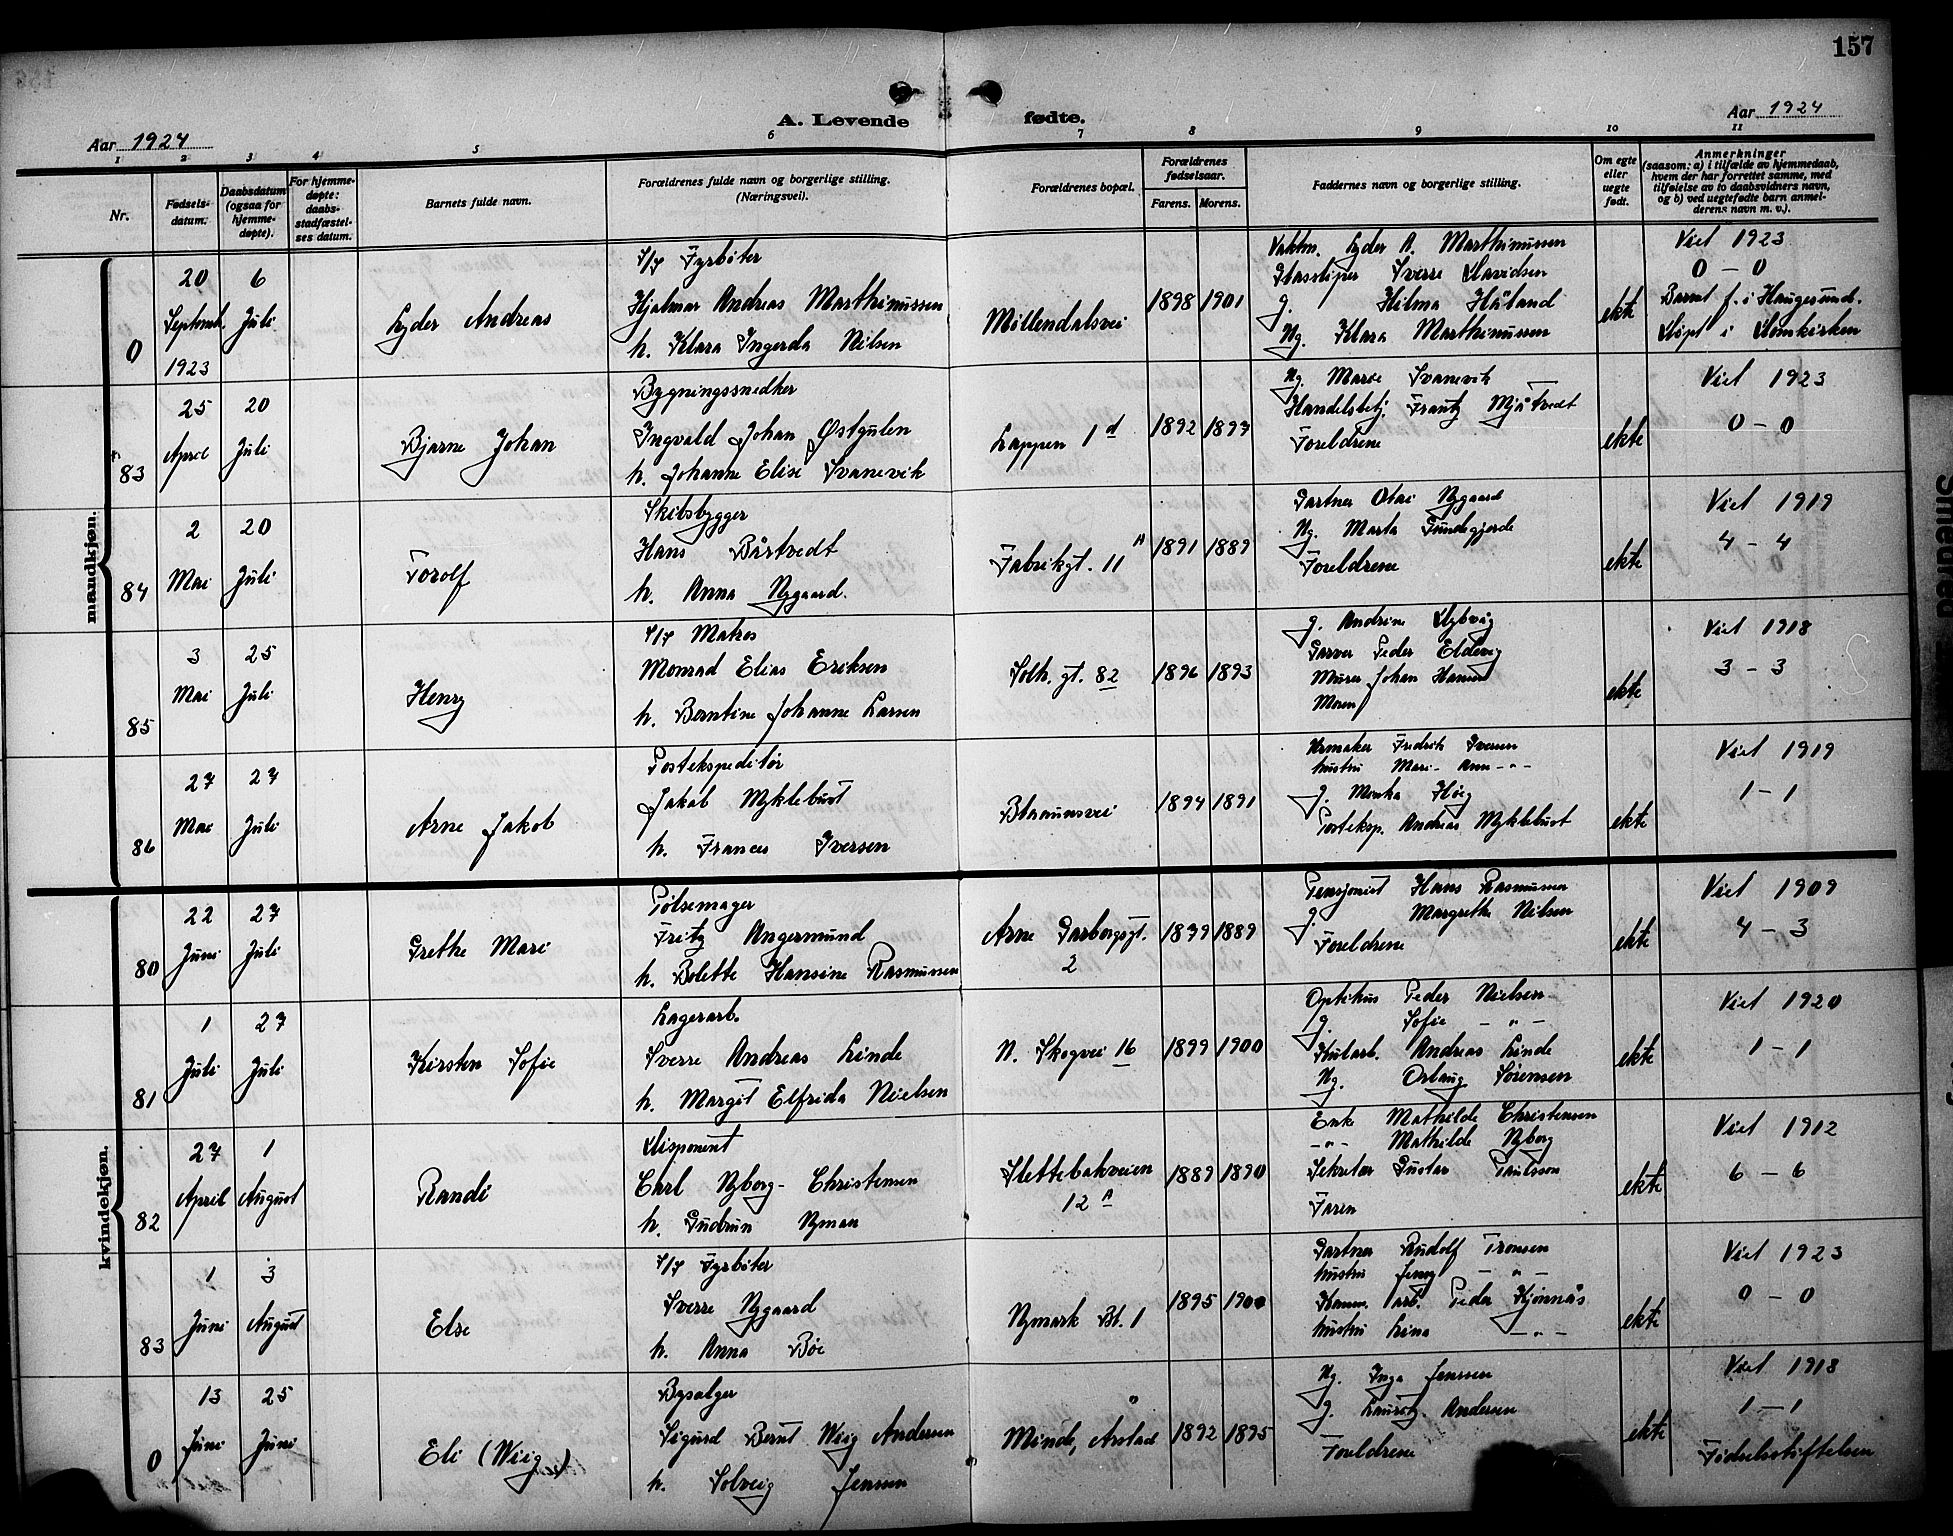 157
A. Levende fødte.
Aar 1924
Aar 1924
1 2 3 4 5 6 7 8 9 10 11
Nr.
Fødsels-datum.
Daabsdatum (ogsaa for hjemme-døpte).
For hjemme-døpte: daabs-stadfæstel-ses datum.
Barnets fulde navn.
Forældrenes fulde navn og borgerlige stilling. (Næringsvei).
Forældrenes bopæl.
Forældrenes fødselsaar.
Farens. Morens.
Faddernes navn og borgerlige stilling.
Om egte eller uegte født.
Anmerkninger (saasom: a) i tilfælde av hjemmedaab, hvem der har forrettet samme, med tilføielse av to daabsvidners navn, og b) ved uegtefødte barn anmel-derens navn m. v.).
mandkjøn.
0
20 Septemb. 1923
6 Juli
Lyder Andreas
S/S Fyrbøter
Hjalmar Andreas Marthinussen
h. Klara Ingerda Nilsen
Möllendalsvei
1898 1901
Vaktm. Lyder A. Marthinussen
Glassliper Sverre Davidsen
g. Hilma Håland
Ug. Klara Marthinussen
ekte
Viet 1923
0 – 0
Barnet f. i Haugesund.
Døpt i Domkirken
83
25 April
20 Juli
Bjarne Johan
Bygningssnedker
Ingvald Johan Østgulen
h. Johanne Elise Svanevik
Lappen 1 d
1892 1897
Ug. Marie Svanevik
Handelsbetj. Frantz Mjåtvedt
Foreldrene
ekte
Viet 1923
0 – 0
84
2 Mai
20 Juli
Torolf
Skibsbygger
Hans Bårtvedt
h. Anna Nygaard.
Fabrikgt. 11 A
1891 1889
Gartner Olai Nygaard
Ug. Marta
Foreldrene
ekte
Viet 1919
4 – 4
85
3 Mai
25 Juli
Henry
S/S Matros
Monrad Elias Eriksen
h. Berntine Johanne Larsen
Solh. gt. 82
1896 1893
g. Andrine Dybvig
Garver Peder Eldevig
Murer Johan Hansen
Moren
ekte
Viet 1918
3 – 3
86
27 Mai
27 Juli
Arne Jakob
Postekspeditør
Jakob Myklebust
h. Frances Iversen
Blaauwsvei
1894 1891
Urmaker Fredrik Iversen
hustru Mari- Ann – " –
g. Monka Høeg
Posteksp. Andreas Myklebust
ekte
Viet 1919
1 – 1
kvindekjøn.
80
22 Juni
27 Juli
Grethe Mari
Pølsemager
Fritz Angermund
h. Bolette Hansine Rasmussen
Arne Garborgsgt. 2
1879 1889
Pensjonist Hans Rasmussen
g. Margrethe Nilsen
Foreldrene
ekte
Viet 1909
4 – 3
81
1 Juli
27 Juli
Kirsten Sofie
Lagerarb.
Sverre Andreas Linde
h. Margit Elfrida Nielsen
N. Skogvei 16
1899 1900
Optikus Peder Nielsen
g. Sofie – " –
Kularb. Andreas Linde
Ug. Orlaug Sørensen
ekte
Viet 1920
1 – 1
82
27 April
1 August
Randi
Disponent
Carl Nyborg- Christensen
h. Gudrun Nyman
Slettebakveien 12 A
1889 1890
Enke Mathilde Christensen
– " – Mathilde Nyborg
Sekretær Gustav Paulsson
Faren
ekte
Viet 1912
6 – 6
83
1 Juni
3 August
Else
S/S Fyrbøter
Sverre Nygaard
h. Anna Bøe
Nymark Bl. 1
1895 1900
Gartner Rudolf Tronsen
hustru Jenny – " –
Komm. arb. Peder Kjønnås
hustru Lina – " –
ekte
Viet 1923
0 – 0
0
13 Juni
25 Juni
Eli (Wiig)
Bysælger
Sigurd Bernt Wiig Andersen
h. Solveig Jensen
Minde, Årstad
1892 1895
Ug. Inga Jenssen
g. Lauritz Andersen
Foreldrene
ekte
Viet 1918
1 – 1
Fødselsstiftelsen